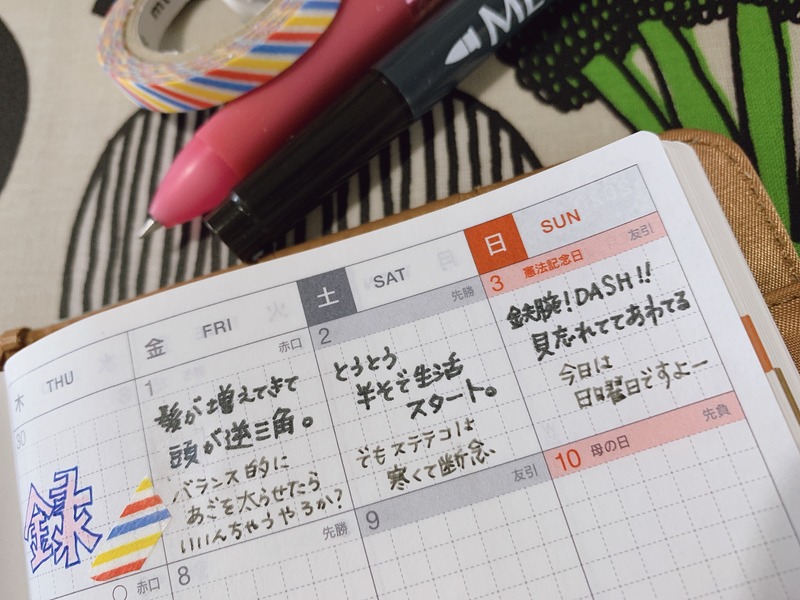 ME
木 THU
金 FRI
土 SAT
日 SUN
30
1 赤口
髪が増えてきて
頭が逆三角。
バランス的に
あごを太らせたら
いいんちゃうやろか?
2 先勝
とうとう
半そで生活
スタート。
でもステテコは
寒くて断念
3 憲法記念日 友引
鉄腕!DASH!!
見忘れててあわてる
今日は
日曜日ですよー
赤口
8 先勝
9 友引
10 母の日 先負